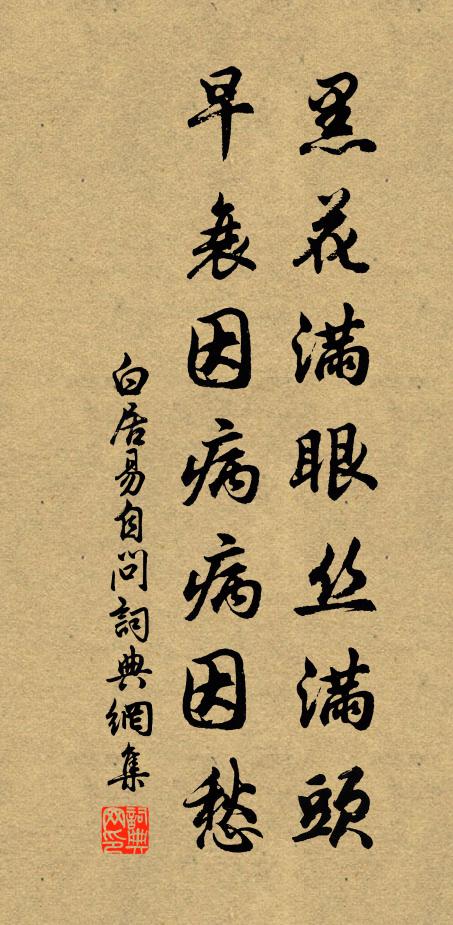 黑花满眼丝满頭
早衰因病病因愁
白居易自问詞典網集
詞典网印